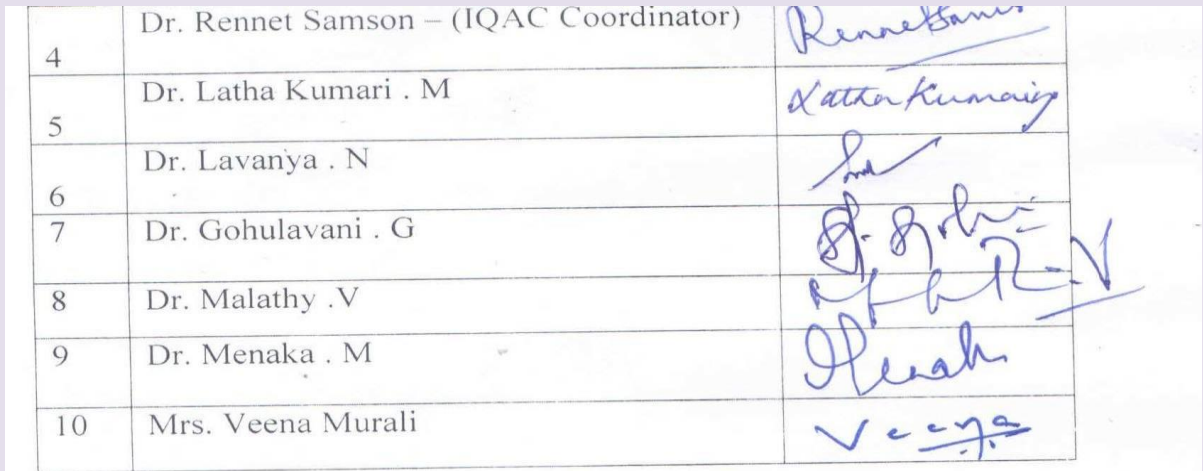 Dr. Rennet Samson – (IQAC Coordinator)
4
Dr. Latha Kumari . M Latha Kumari
5
Dr. Lavanya . N
6
7 Dr. Gohulavani . G
8 Dr. Malathy .V
9 Dr. Menaka . M
10 Mrs. Veena Murali Veena